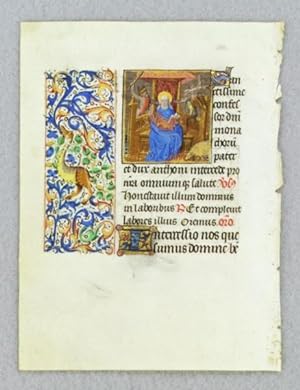 Sān
ctissime
confes
sor dn̄i
mona
choꝝ
pater
et dux anthoni intercede pro
nr̄i omniumqꝫ salute
Honestauit illum dominus
in laboribus R̄ Et compleuit
labores illius Oremus orō
Intercessio nos que
sumus domine bea